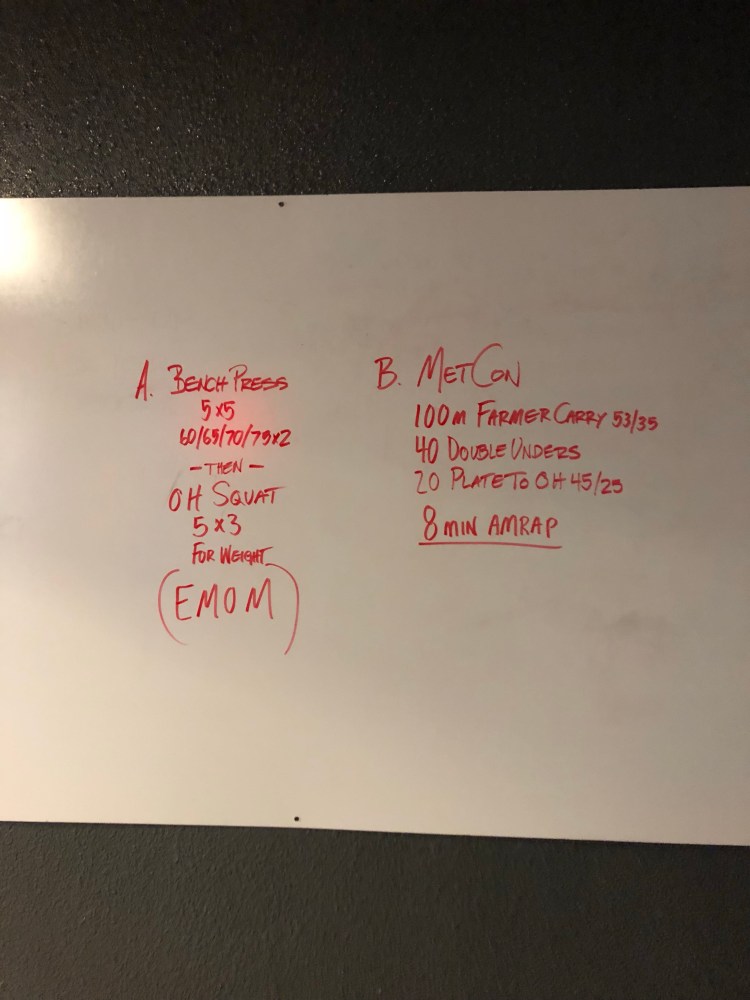 A. BENCH PRESS
5x5
60/65/70/75x2
- THEN -
OH SQUAT
5x3
FOR WEIGHT
(EMOM)
B. METCON
100m FARMER CARRY 53/35
40 DOUBLE UNDERS
20 PLATE TO OH 45/25
8 MIN AMRAP